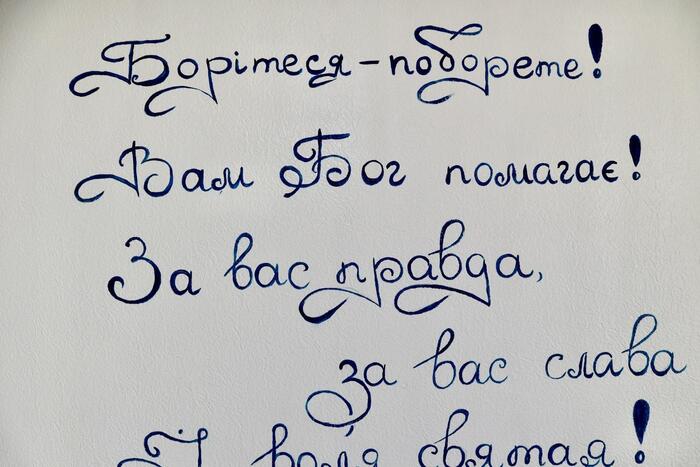 Борітеся - поборете!
Вам Бог помагає!
За вас правда,
за вас слава
І воля святая!